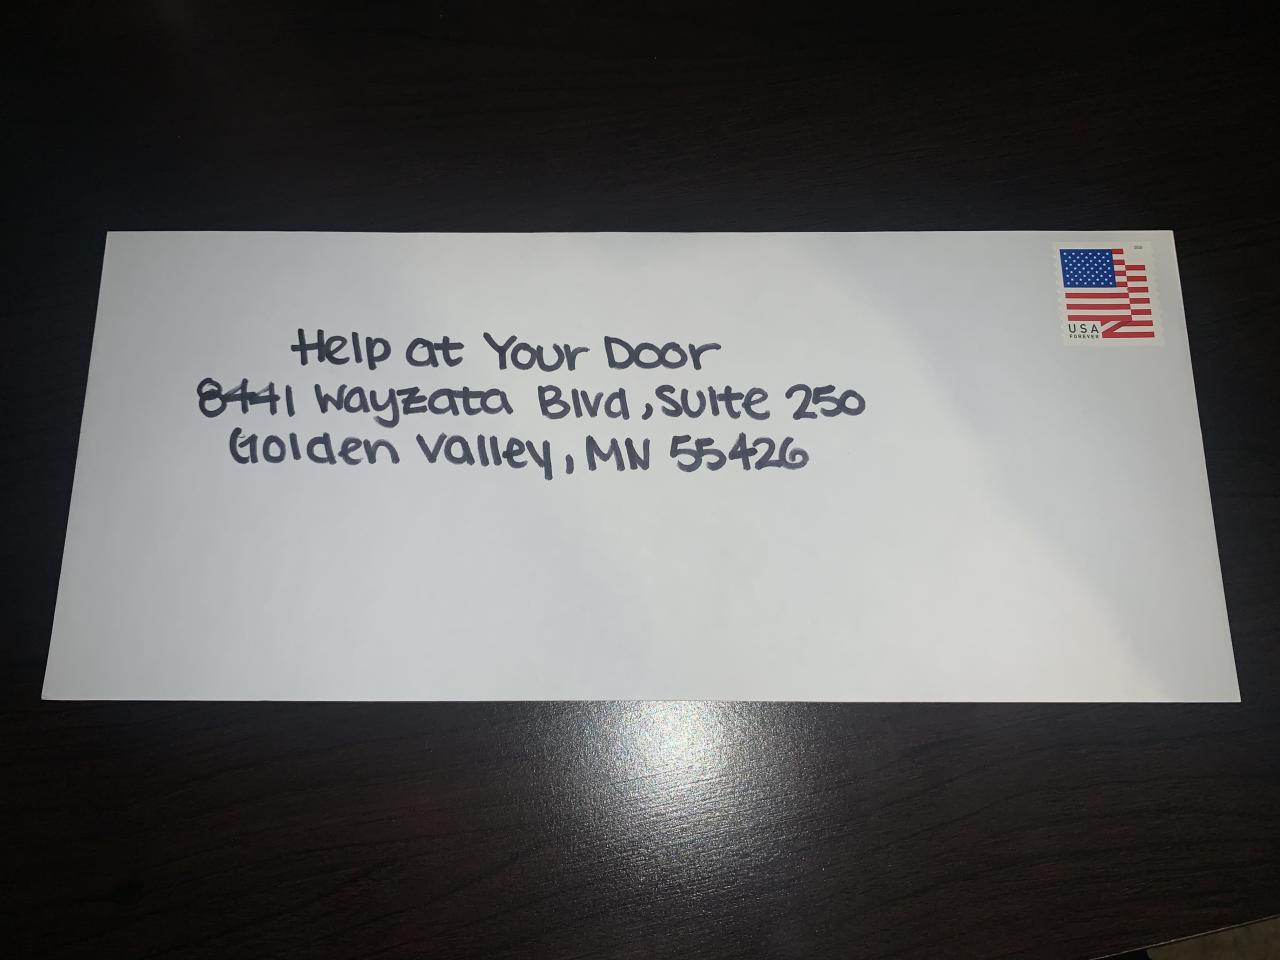 Help at Your Door
8441 Wayzata Blvd, Suite 250
Golden Valley, MN 55426
USA
FOREVER